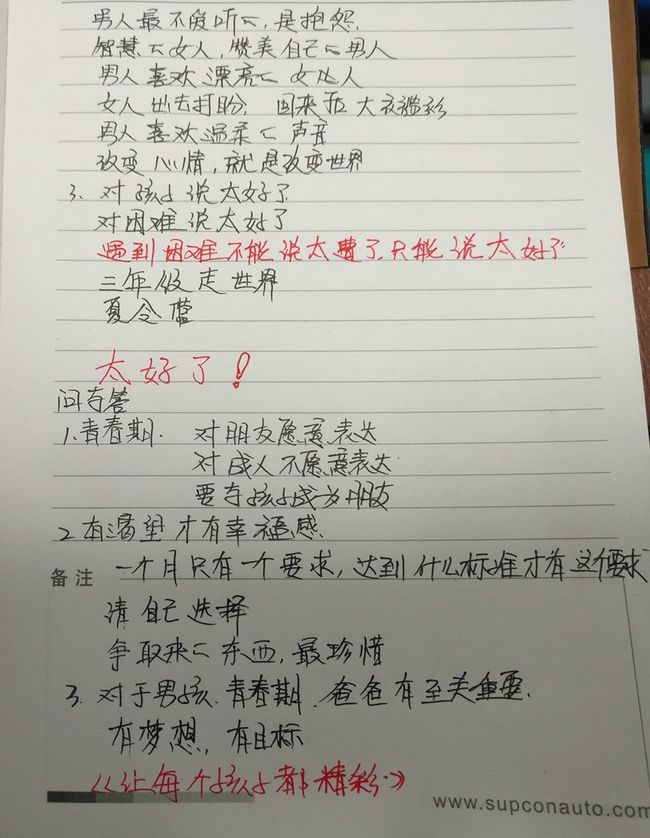 男人最不爱听的,是抱怨.
智慧的女人,赞美自己的男人
男人喜欢漂亮的女人
女人出去打扮,回来
男人喜欢温柔的声音
改变心情,就是改变世界
3. 对孩子说太好了
对困难说太好了
遇到困难不能说太费了.只能说太好了
三年级走世界
夏令营
太好了!
问与答
1.青春期. 对朋友愿意表达
对成人不愿意表达
要与孩子成为朋友
2 有渴望才有幸福感.
备注 一个月只有一个要求,达到什么标准才有这个要求
请自己选择
争取来的东西,最珍惜
3. 对于男孩.青春期.爸爸有至关重要.
有梦想,有目标
《让每个孩子都精彩》
www.supconauto.com